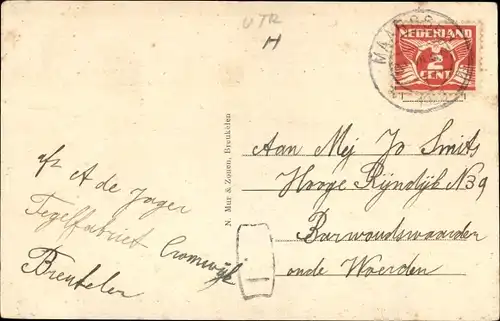 UTR
H
MAARSS
NEDERLAND
2
CENT
N. Mur & Zonen, Breukelen
Aan Mej Jo Smits
Hooge Rijndijk N 39
Barwoudswaarden
onde Woerden
afz A de Jager
Tegelfabriek Cromwijk
Breukelen